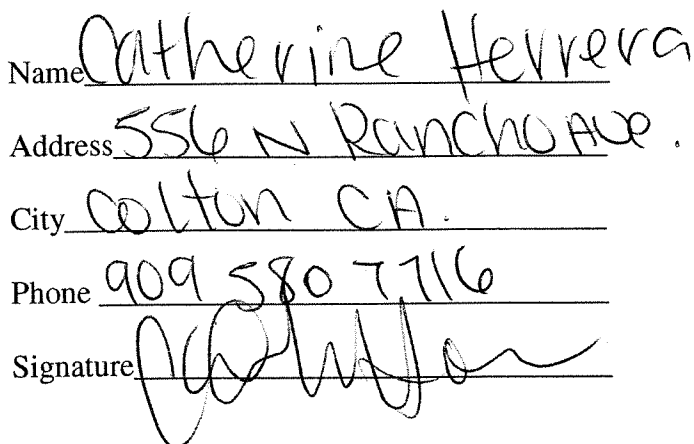 Name Catherine Herrera
Address 556 N Rancho Ave.
City Colton CA.
Phone 909 580 7716
Signature